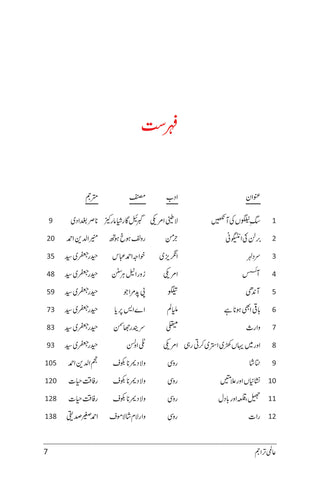 فہرست
عنوان ادب مصنف مترجم
1 سگِ نیلگوں کی آنکھیں لاطینی امریکی گیبریئل گارشیا مارکیز ناصر بغدادی 9
2 برلن کی اینٹیگونی جرمن رولف ہوخ ہوتھ منیر الدین احمد 20
3 سردلہر انگریزی خواجہ احمد عباس حیدر جعفری سید 35
4 آئسس امریکی زورا نیل ہرسٹن حیدر جعفری سید 48
5 آندھی تیلگو پی پدمراجو حیدر جعفری سید 59
6 باقی ابھی ہونا ہے ملیالم اے ایس پریا حیدر جعفری سید 73
7 وارث میتھلی سریندر جھا سمن حیدر جعفری سید 83
8 اور میں یہاں کھڑی استری کرتی رہی امریکی ٹلی اولسن حیدر جعفری سید 93
9 نتاشا روسی ولادیمیر نابکوف نجم الدین احمد 105
10 نشانیاں اور علامتیں روسی ولادیمیر نابکوف رفاقت حیات 120
11 جھیل، قلعہ اور بادل روسی ولادیمیر نابکوف رفاقت حیات 128
12 رات روسی وارلام شالاموف احمد صغیر صدیقی 138
عالمی تراجم 7